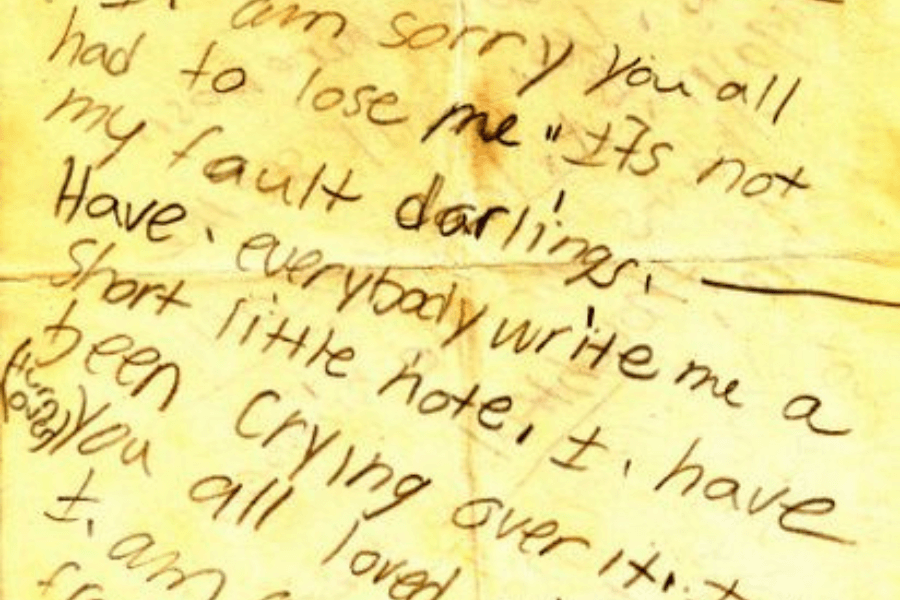 I am sorry you all
had to lose me " Its not
my fault darlings.
Have. everybody write me a
short little note. I. have
been crying over it.
(turn over)
You all loved
I. am